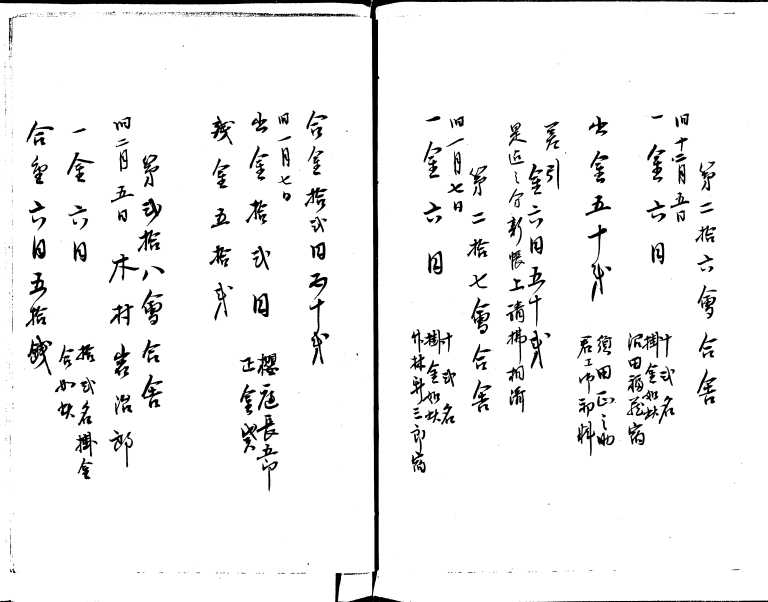 第二拾六會合舎
旧十二月五日
一金六円
十弐名
掛金如故
沢田福蔵宿
出金五十戔
須田正之助
差引
金六円五十戔
是迄之分新帳上請拂相済
第二拾七會合舎
旧一月七日
一金六円
十弐名
掛金如故
合金拾弐円五十戔
旧一月七日
出金拾弐円
櫻庭長五郎
正金渡
残金五拾戔
第弐拾八會合舎
旧二月五日
木村岩治郎
一金六円
拾弐名掛金
合如故
合金六円五拾銭